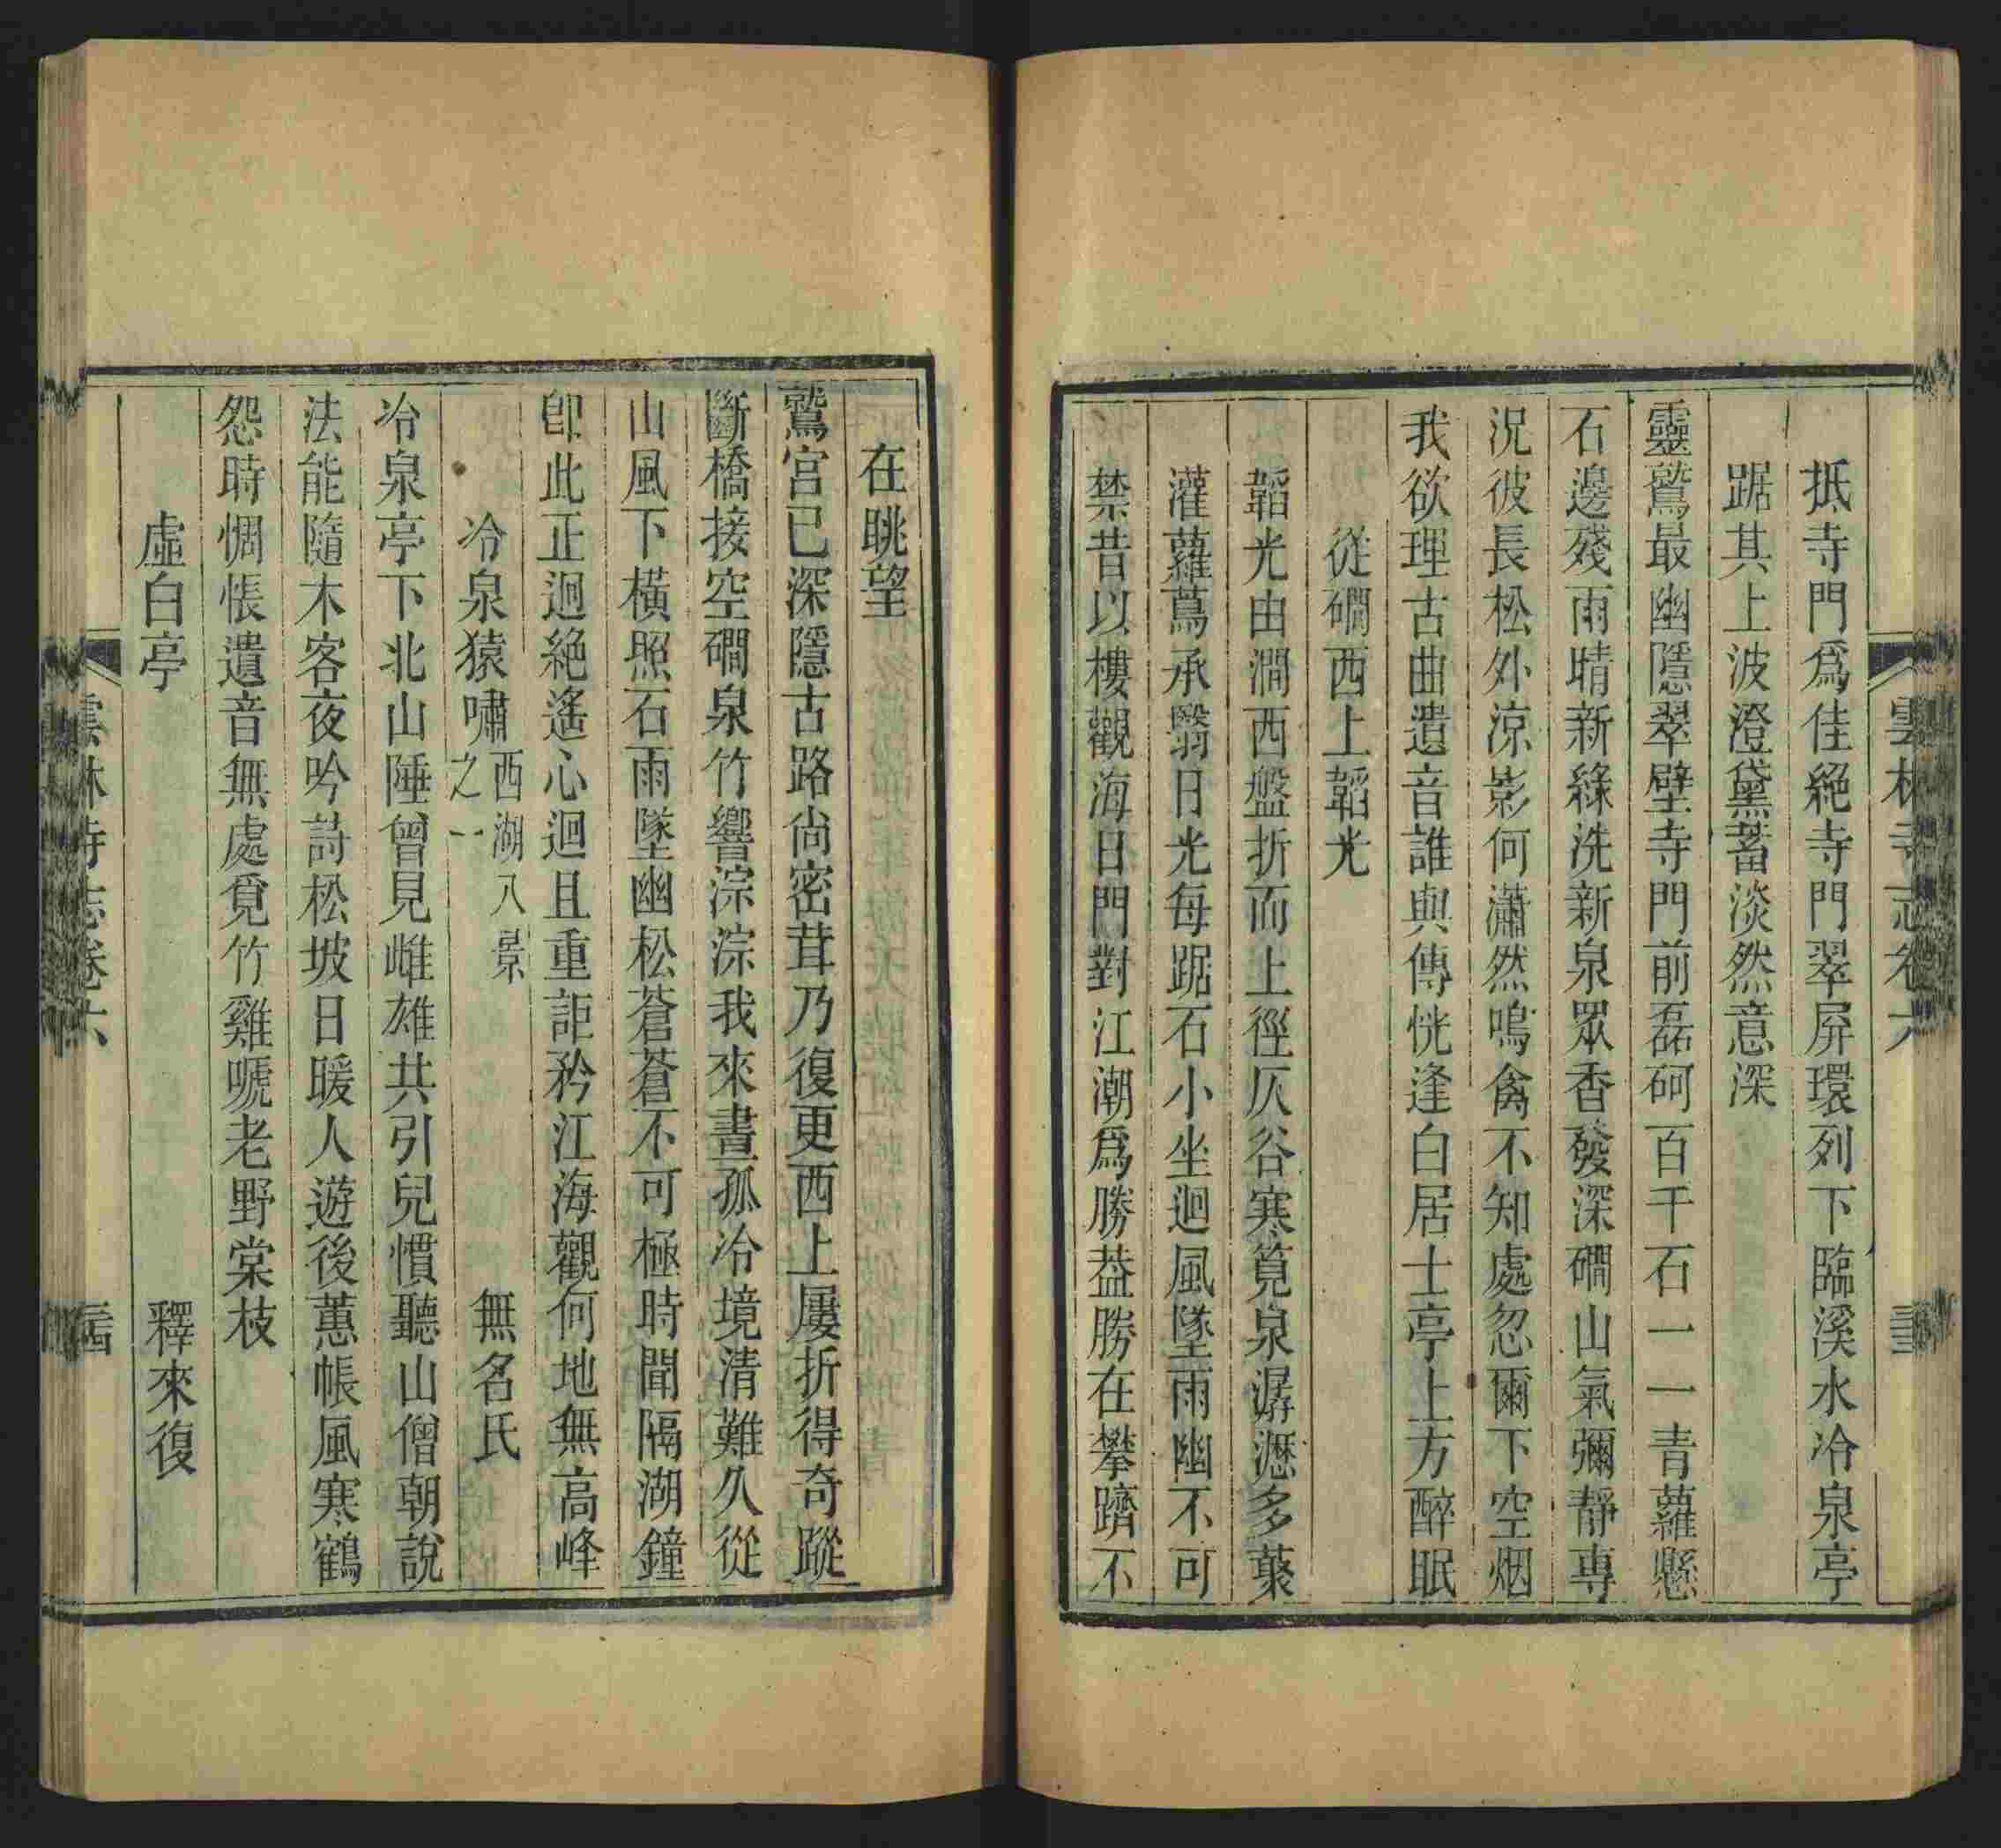 雲林寺志卷六
抵寺門爲佳絕寺門翠屛環列下臨溪水冷泉亭
踞其上波澄黛蓄淡然意深
靈鷲最幽隱翠壁寺門前磊砢百千石一一青蘿懸
石邊殘雨晴新綠洗新泉眾香發深磵山氣彌靜專
況彼長松外涼影何瀟然鳴禽不知處忽爾下空烟
我欲理古曲遺音誰與傳恍逢白居士亭上方醉眠
從磵西上韜光
韜光由澗西盤折而上徑仄谷寒筧泉潺瀝多藂
灌蘿蔦承翳日光每踞石小坐迴風墜雨幽不可
禁昔以樓觀海日門對江潮爲勝葢勝在攀躋不
在眺望
鷲宮已深隱古路尙密茸乃復更西上屢折得奇蹤
斷橋接空磵泉竹響淙淙我來晝孤冷境清難久從
山風下橫照石雨墜幽松蒼蒼不可極時聞隔湖鐘
卽此正迥絕遙心迴且重詎矜江海觀何地無高峰
冷泉猿嘯西湖八景之一　無名氏
冷泉亭下北山陲曾見雌雄共引兒慣聽山僧朝說
法能隨木客夜吟詩松坡日暖人遊後蕙帳風寒鶴
怨時惆悵遺音無處覓竹雞嗁老野棠枝
虛白亭　釋來復
雲林寺志卷六